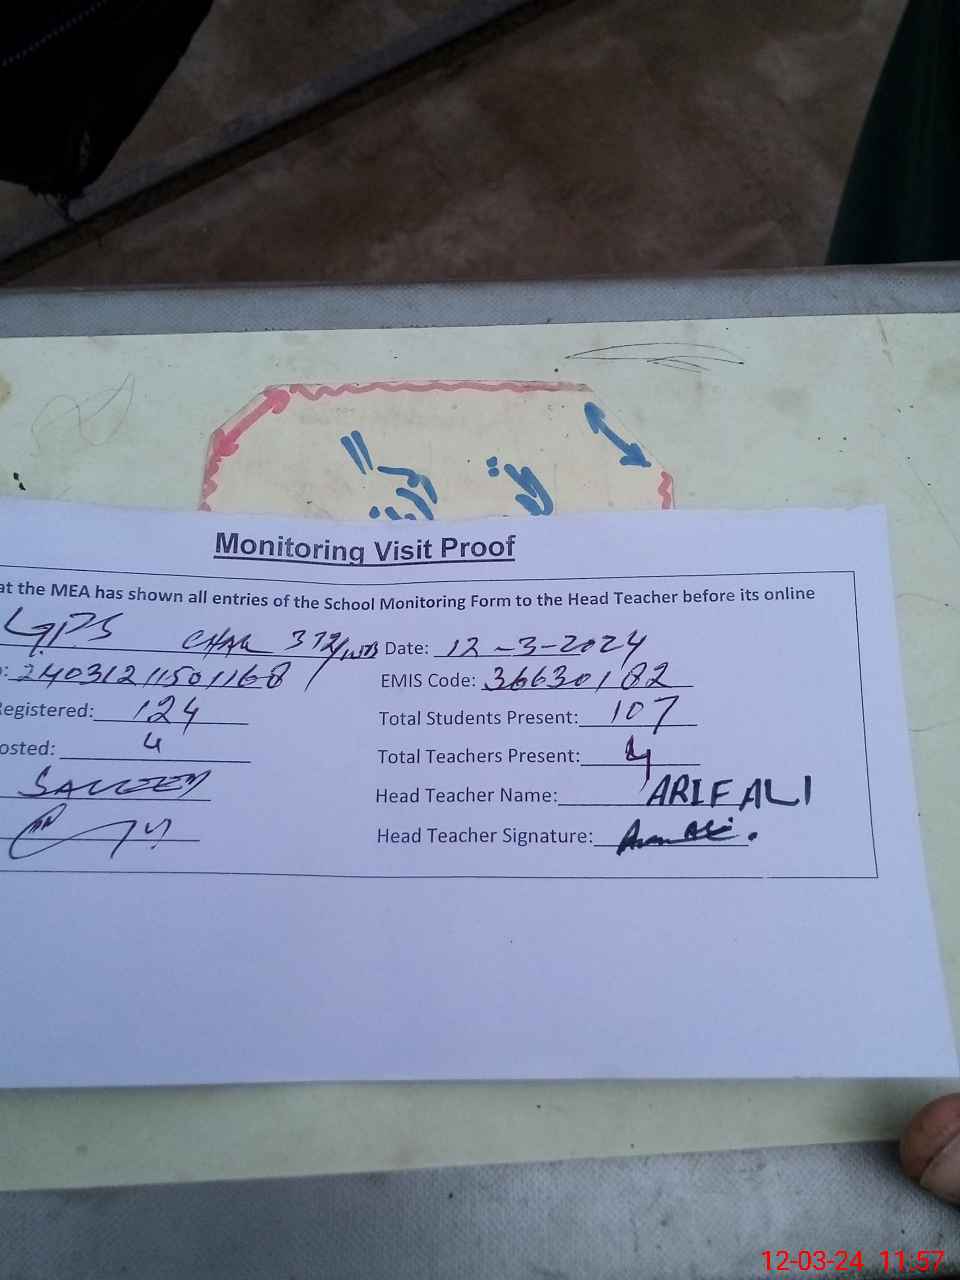 Monitoring Visit Proof
at the MEA has shown all entries of the School Monitoring Form to the Head Teacher before its online
GPS CHAK 372/WB Date: 12-3-2024
: 24031211501168 EMIS Code: 36630182
Registered: 124 Total Students Present: 107
osted: 4 Total Teachers Present: 4
SALEEM Head Teacher Name: ARIF ALI
Head Teacher Signature:
12-03-24 11:57